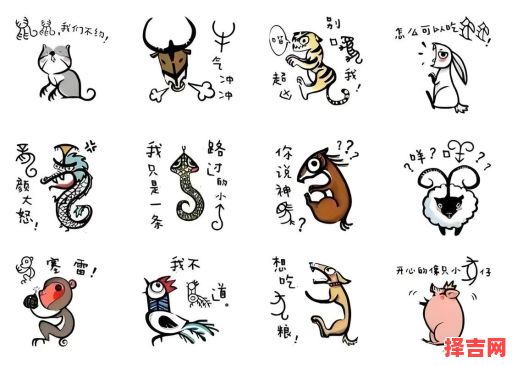 鼠鼠，我们不约！
牛气冲冲
喵
超凶
别口虎我！
怎么可以吃兔兔！
龙颜大怒！
我只是一条
路过的小
你说神马？
??
?咩?咩??
猴塞雷！
我不鸡道。
想吃犬粮！
开心的像只小豕仔
择吉网